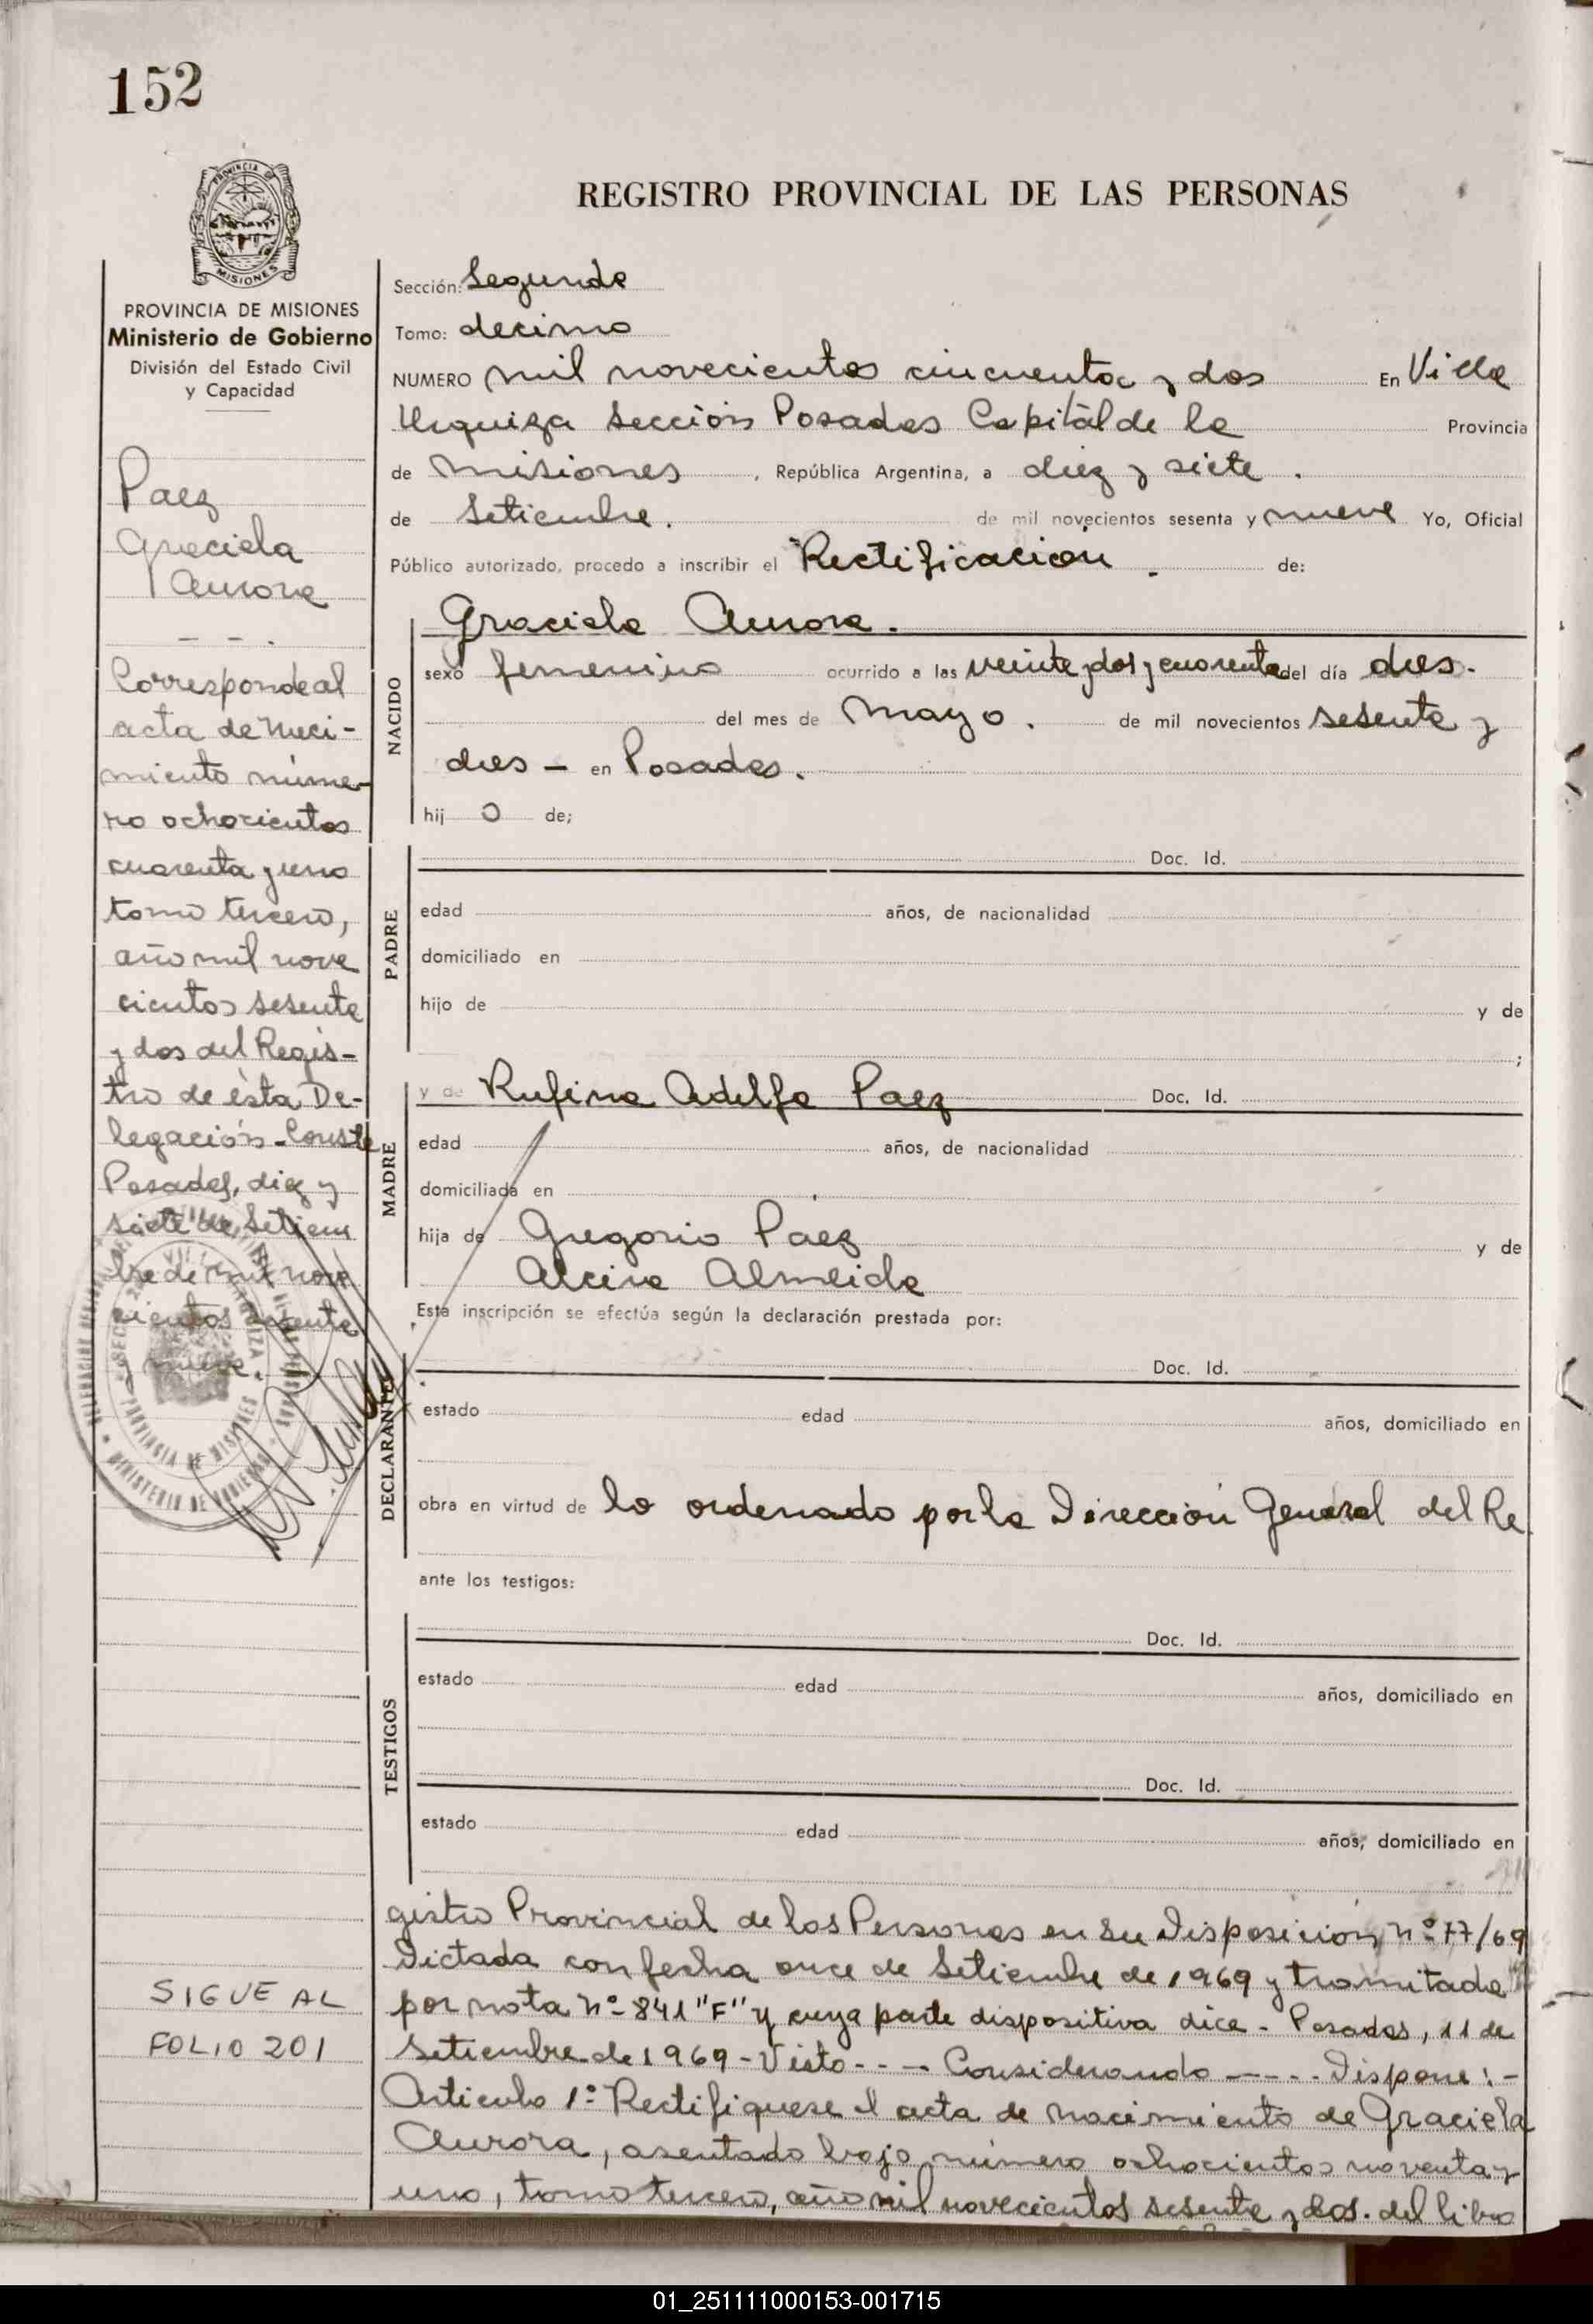 152
REGISTRO PROVINCIAL DE LAS PERSONAS
PROVINCIA DE
MISIONES
PROVINCIA DE MISIONES
Ministerio de Gobierno
División del Estado Civil
y Capacidad
Paez
Graciela
Aurora
Corresponde al
acta de Naci-
miento núme-
ro ochocientos
cuarenta y uno
tomo tercero,
año mil nove
cientos sesenta
y dos del Regis-
tro de ésta De-
legación - Conste
Posadas, diez y
siete de Setiem
bre de mil nove
cientos sesenta
y nueve.
SIGUE AL
FOLIO 201
Sección: Segunda
Tomo: decimo
NUMERO mil novecientos cincuenta y dos En Villa
Urquiza Sección Posadas Capital de la Provincia
de Misiones, República Argentina, a diez y siete.
de Setiembre. de mil novecientos sesenta y nueve Yo, Oficial
Público autorizado, procedo a inscribir el Rectificación de:
Graciela Aurora.
NACIDO
sexo femenino ocurrido a las veinte y dos y cuarenta del día dos.
del mes de Mayo. de mil novecientos sesenta y
dos - en Posadas.
hij o de;
PADRE
Doc. Id.
edad años, de nacionalidad
domiciliado en
hijo de y de
;
MADRE
y de Rufina Adelfa Paez Doc. Id.
edad años, de nacionalidad
domiciliada en
hija de Gregorio Páez y de
Alcira Almeida
Esta inscripción se efectúa según la declaración prestada por:
DECLARANTES
Doc. Id.
estado edad años, domiciliado en
obra en virtud de lo ordenado por la Dirección General del Re
ante los testigos:
TESTIGOS
Doc. Id.
estado edad años, domiciliado en
Doc. Id.
estado edad años, domiciliado en
gistro Provincial de las Personas en su Disposición, nº 77/69
Dictada con fecha once de Setiembre de 1969 y tramitada
por nota nº 841 "F" y cuya parte dispositiva dice - Posadas, 11 de
Setiembre de 1969 - Visto - - - - Considerando - - - - Dispone: -
Articulo 1º Rectifiquese el acta de nacimiento de Graciela
Aurora, asentado bajo número ochocientos noventa y
uno, tomo tercero, año mil novecientos sesenta y dos. del libro
01_251111000153-001715